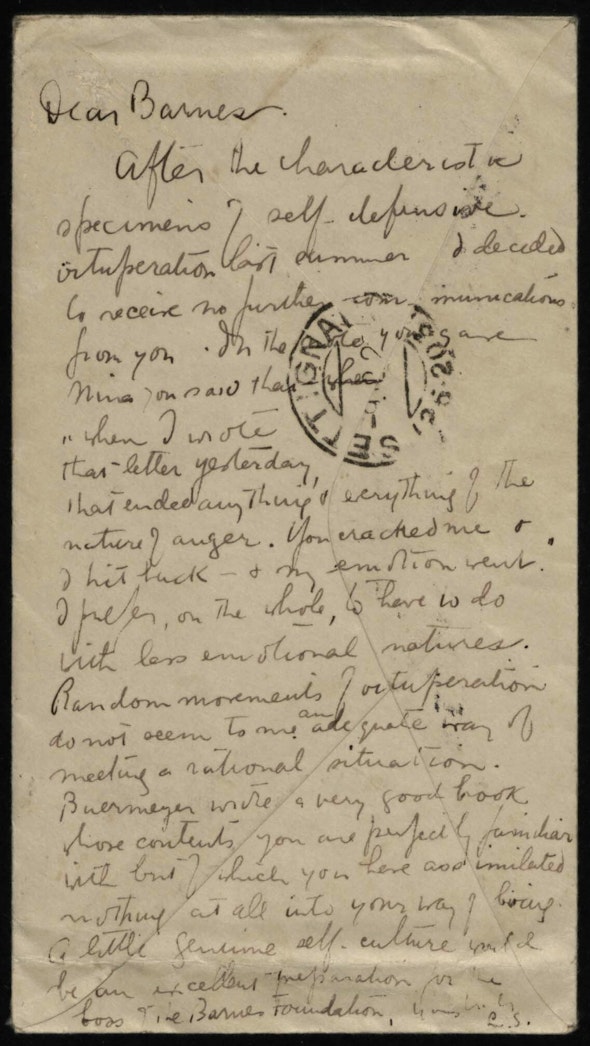 Dear Barnes.
After the characteristic
specimens of self-defensive
vituperation last summer I decided
to receive no further communications
from you. In the note you gave
Nina you said that when
"when I wrote
that letter yesterday,
that ended anything & everything of the
nature of anger. You cracked me &
I hit back – & my emotion went."
I prefer, on the whole, to have to do
with less emotional natures.
Random movements of vituperation
do not seem to me an adequate way of
meeting a rational situation.
Buermeyer wrote a very good book
whose contents you are perfectly familiar
with but of which you have assimilated
nothing at all into your way of living.
A little genuine self-culture would
be an excellent preparation for the
boss of the Barnes Foundation,
L.S.
SETTIGNA